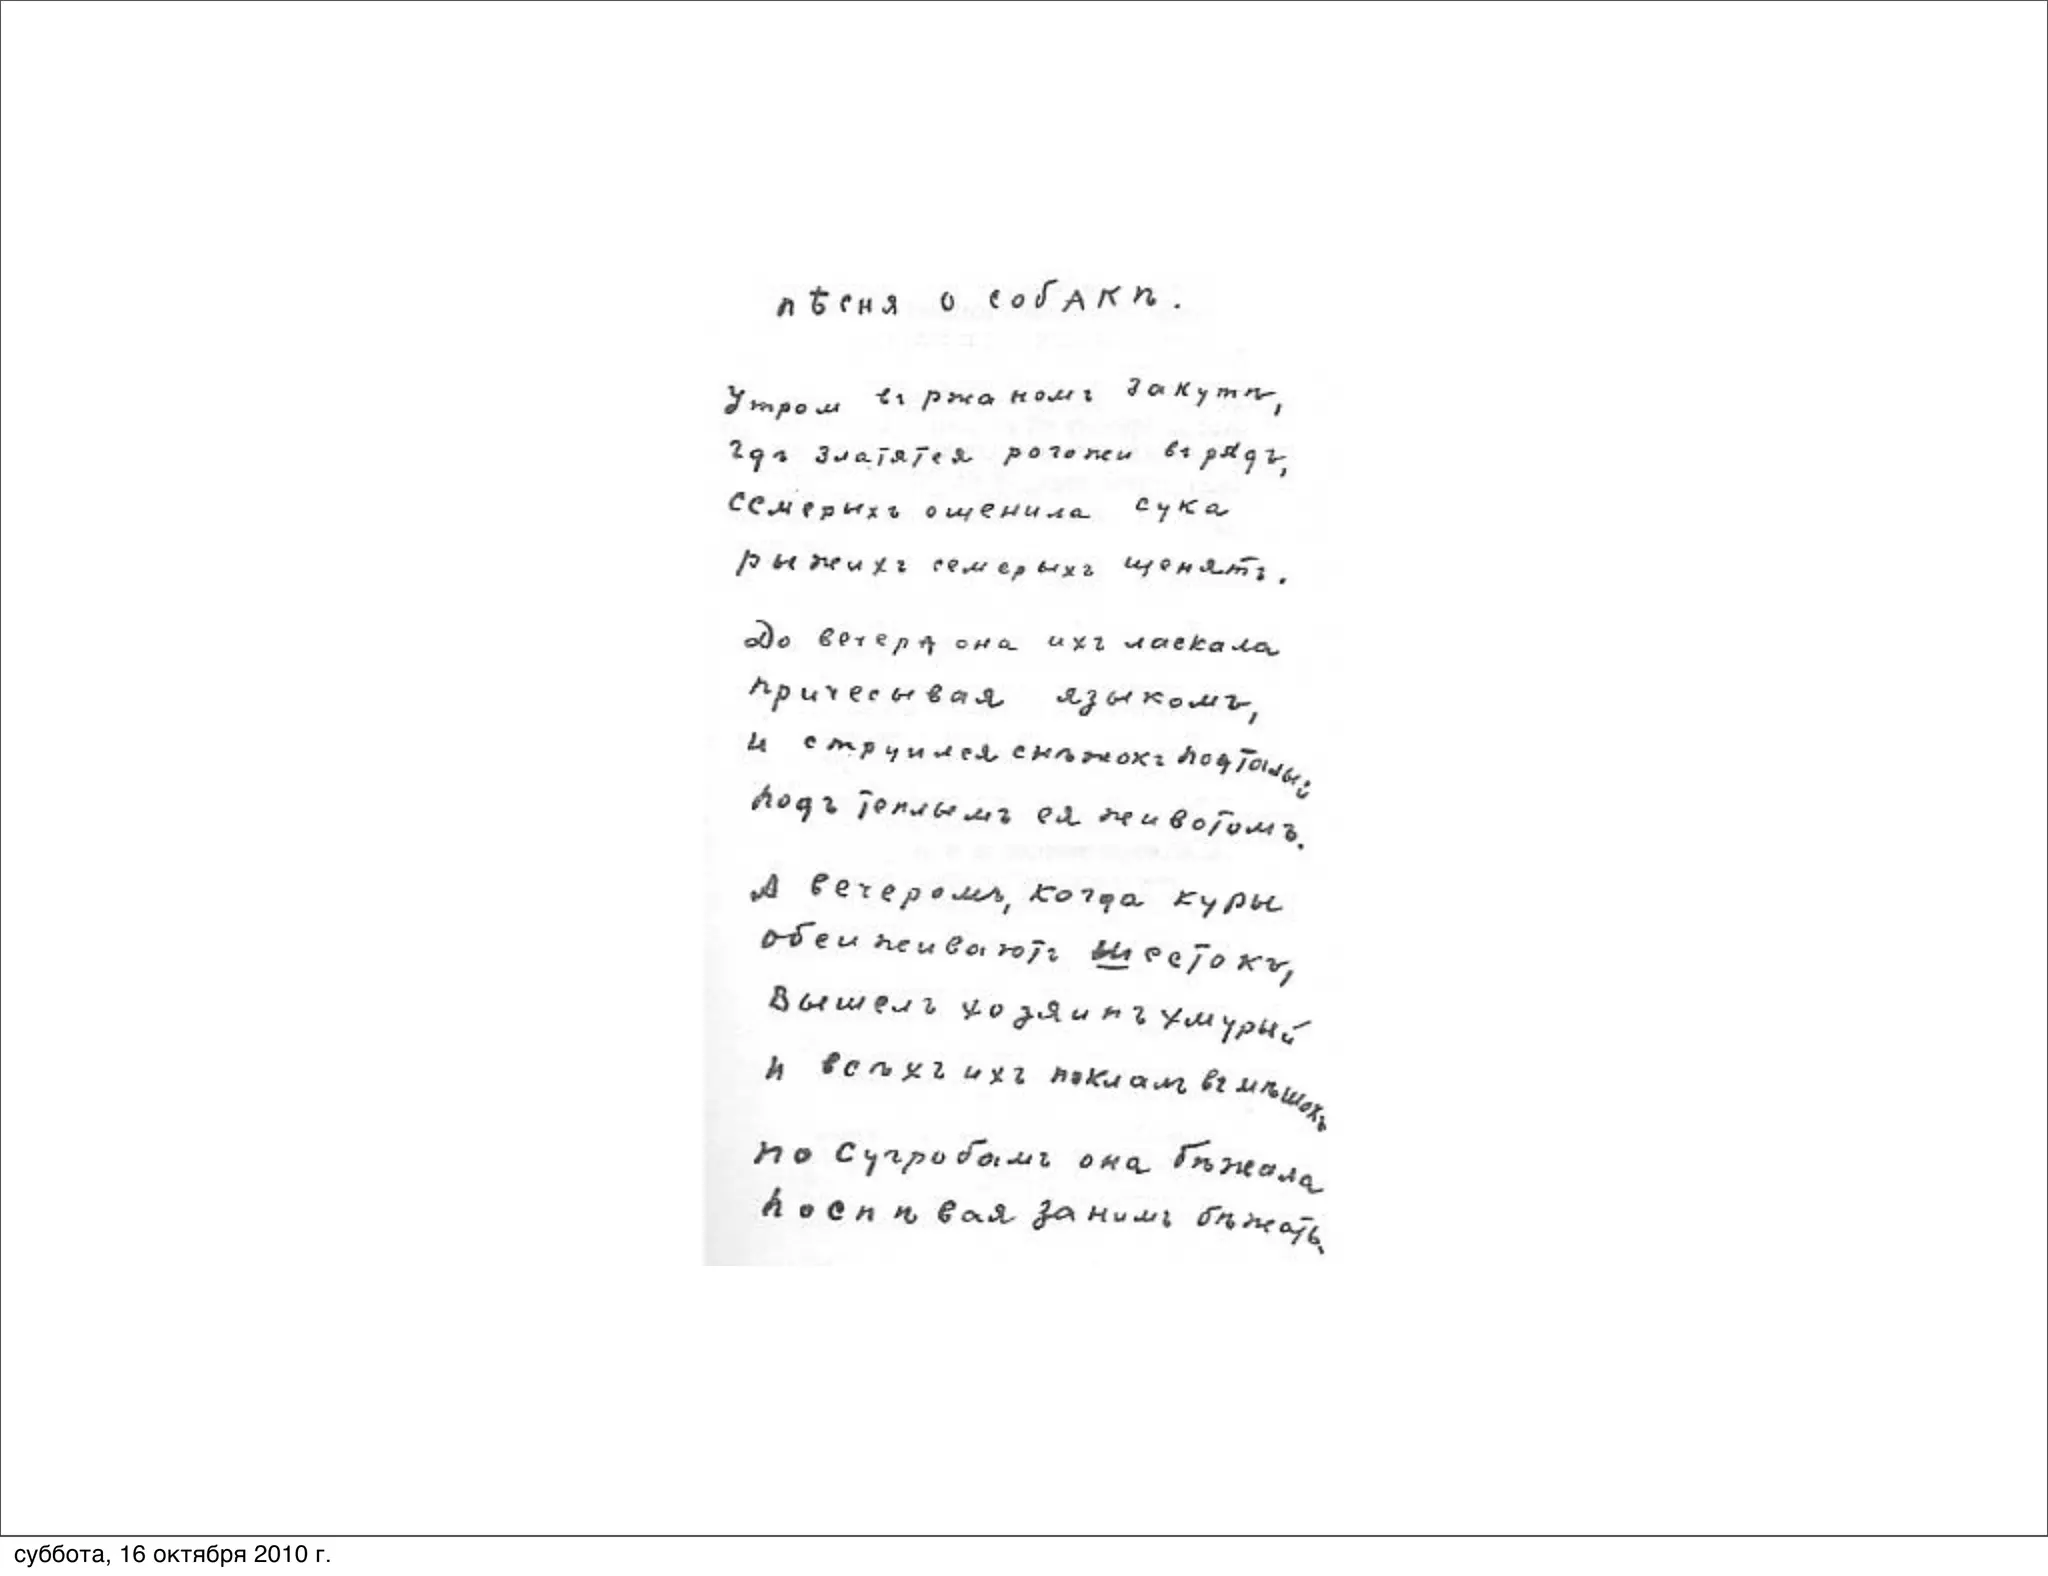 пѣсня о собакѣ.
Утром въ ржаномъ закутѣ,
гдѣ златятся рогожи въ рядъ,
семерыхъ ощенила сука
рыжихъ семерыхъ щенятъ.
До вечера она ихъ ласкала
причесывая языкомъ,
и струился снѣжокъ подталый
подъ теплымъ ея животомъ.
А вечеромъ, когда куры
обсиживаютъ шестокъ,
Вышелъ хозяинъ хмурый
и всѣхъ ихъ поклалъ въ мѣшокъ
по сугробамъ она бѣжала
поспѣвая за нимъ бѣжать.
суббота, 16 октября 2010 г.